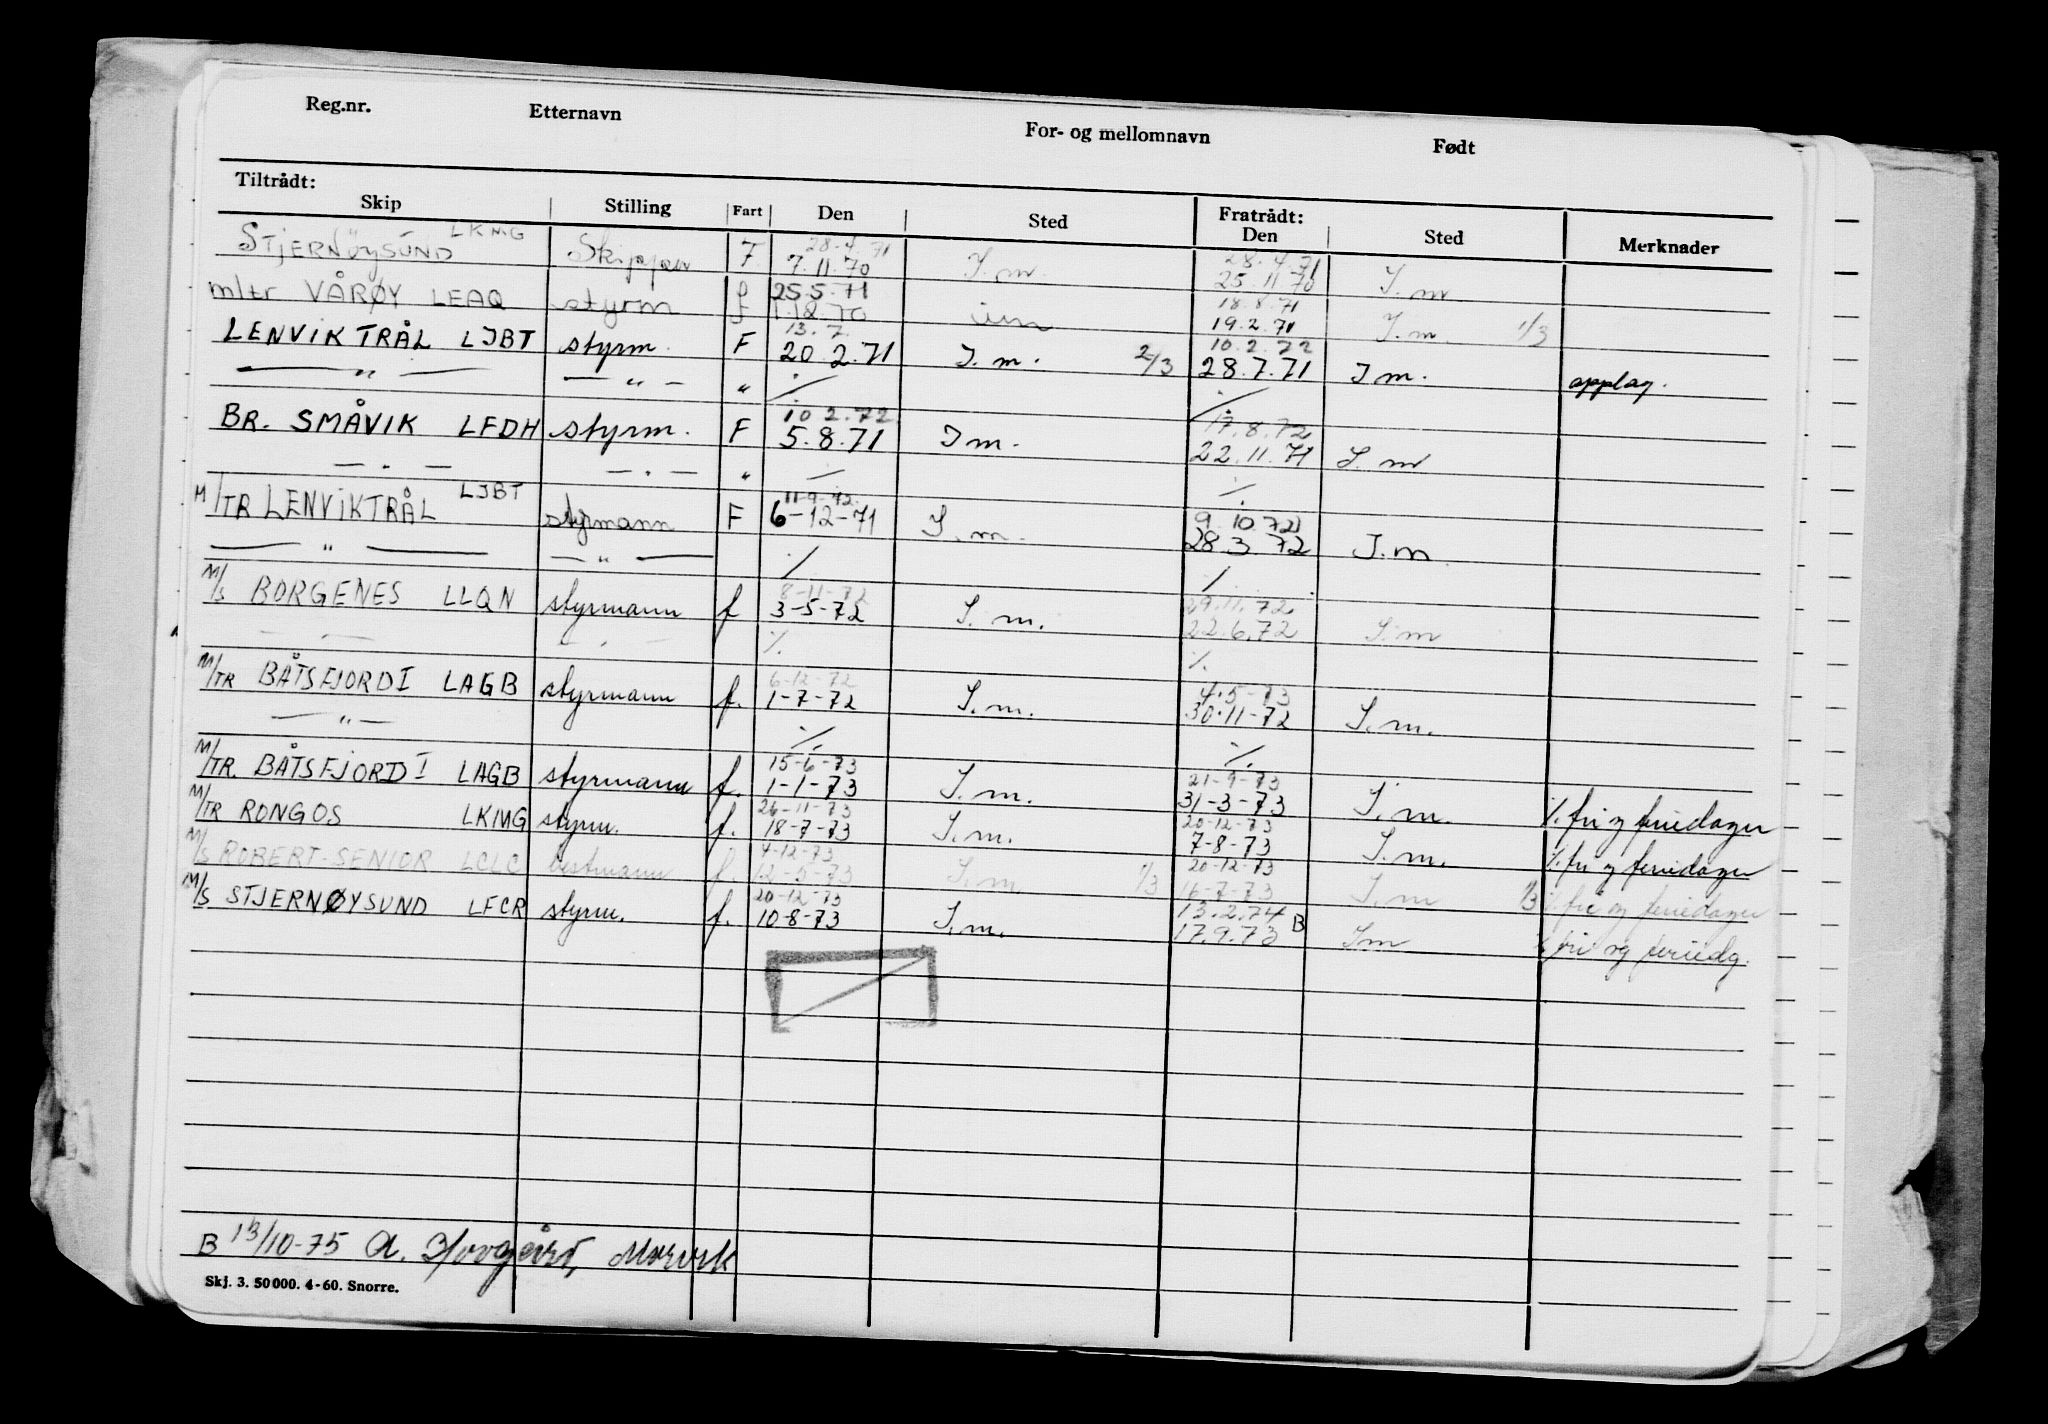 Reg.nr. Etternavn For- og mellomnavn Født
Tiltrådt: Fratrådt:
Skip Stilling Fart Den Sted Den Sted Merknader
LKMG 28-4-71 28.4.71
STJERNØYSUND Skipper F 7.11.70 I.m. 25.11.70 I.m
25.5.71 18.8.71
m/tr VÅRØY LEAQ styrm f 1.12.70 im 19.2.71 I.m. 1/3
13.7. 10.2.72
LENVIKTRÅL LJBT styrm. F 20.2.71 I.m. 2/3 28.7.71 I m. opplag.
— " — — " — " ./. ./.
10.2.72 17.8.72
BR. SMÅVIK LFDH styrm. F 5.8.71 I m. 22.11.71 I.m
— " — — " — " ./. ./.
LJBT 11-9-72 9.10.72
M/TR LENVIKTRÅL styrmann F 6-12-71 I.m. 28.3.72 I.m
— " — — " — ./. ./.
8-11-72 29.11.72
M/S BORGENES LLQN styrmann f 3-5-72 I.m. 22.6.72 I.m
— " — — " — ./. ./.
6-12-72 4-5-73
M/TR BÅTSFJORD I LAGB styrmann f. 1-7-72 I.m. 30-11-72 I.m.
— " — ./. ./.
15-6-73 21-9-73
M/TR. BÅTSFJORD I LAGB styrmann f. 1-1-73 I.m. 31-3-73 I.m. ./. fri og feriedager
26-11-73 20-12-73
M/TR RONGOS LKMG styrm. f. 18-7-73 I.m. 7-8-73 I.m. ./. fri og feriedager
4-12-73 20-12-73
M/S ROBERT-SENIOR LCLC bestmann f. 12-5-73 I.m 1/3 16-7-73 I.m 1/3 ./. fri og feriedager
20-12-73 13.2.74
M/S STJERNØYSUND LFCR styrm. f. 10-8-73 I.m. 17.9.73 B I m ./. fri og feriedg.
B 13/10-75 A. Hovgård,
Skj. 3. 50 000. 4-60. Snorre.